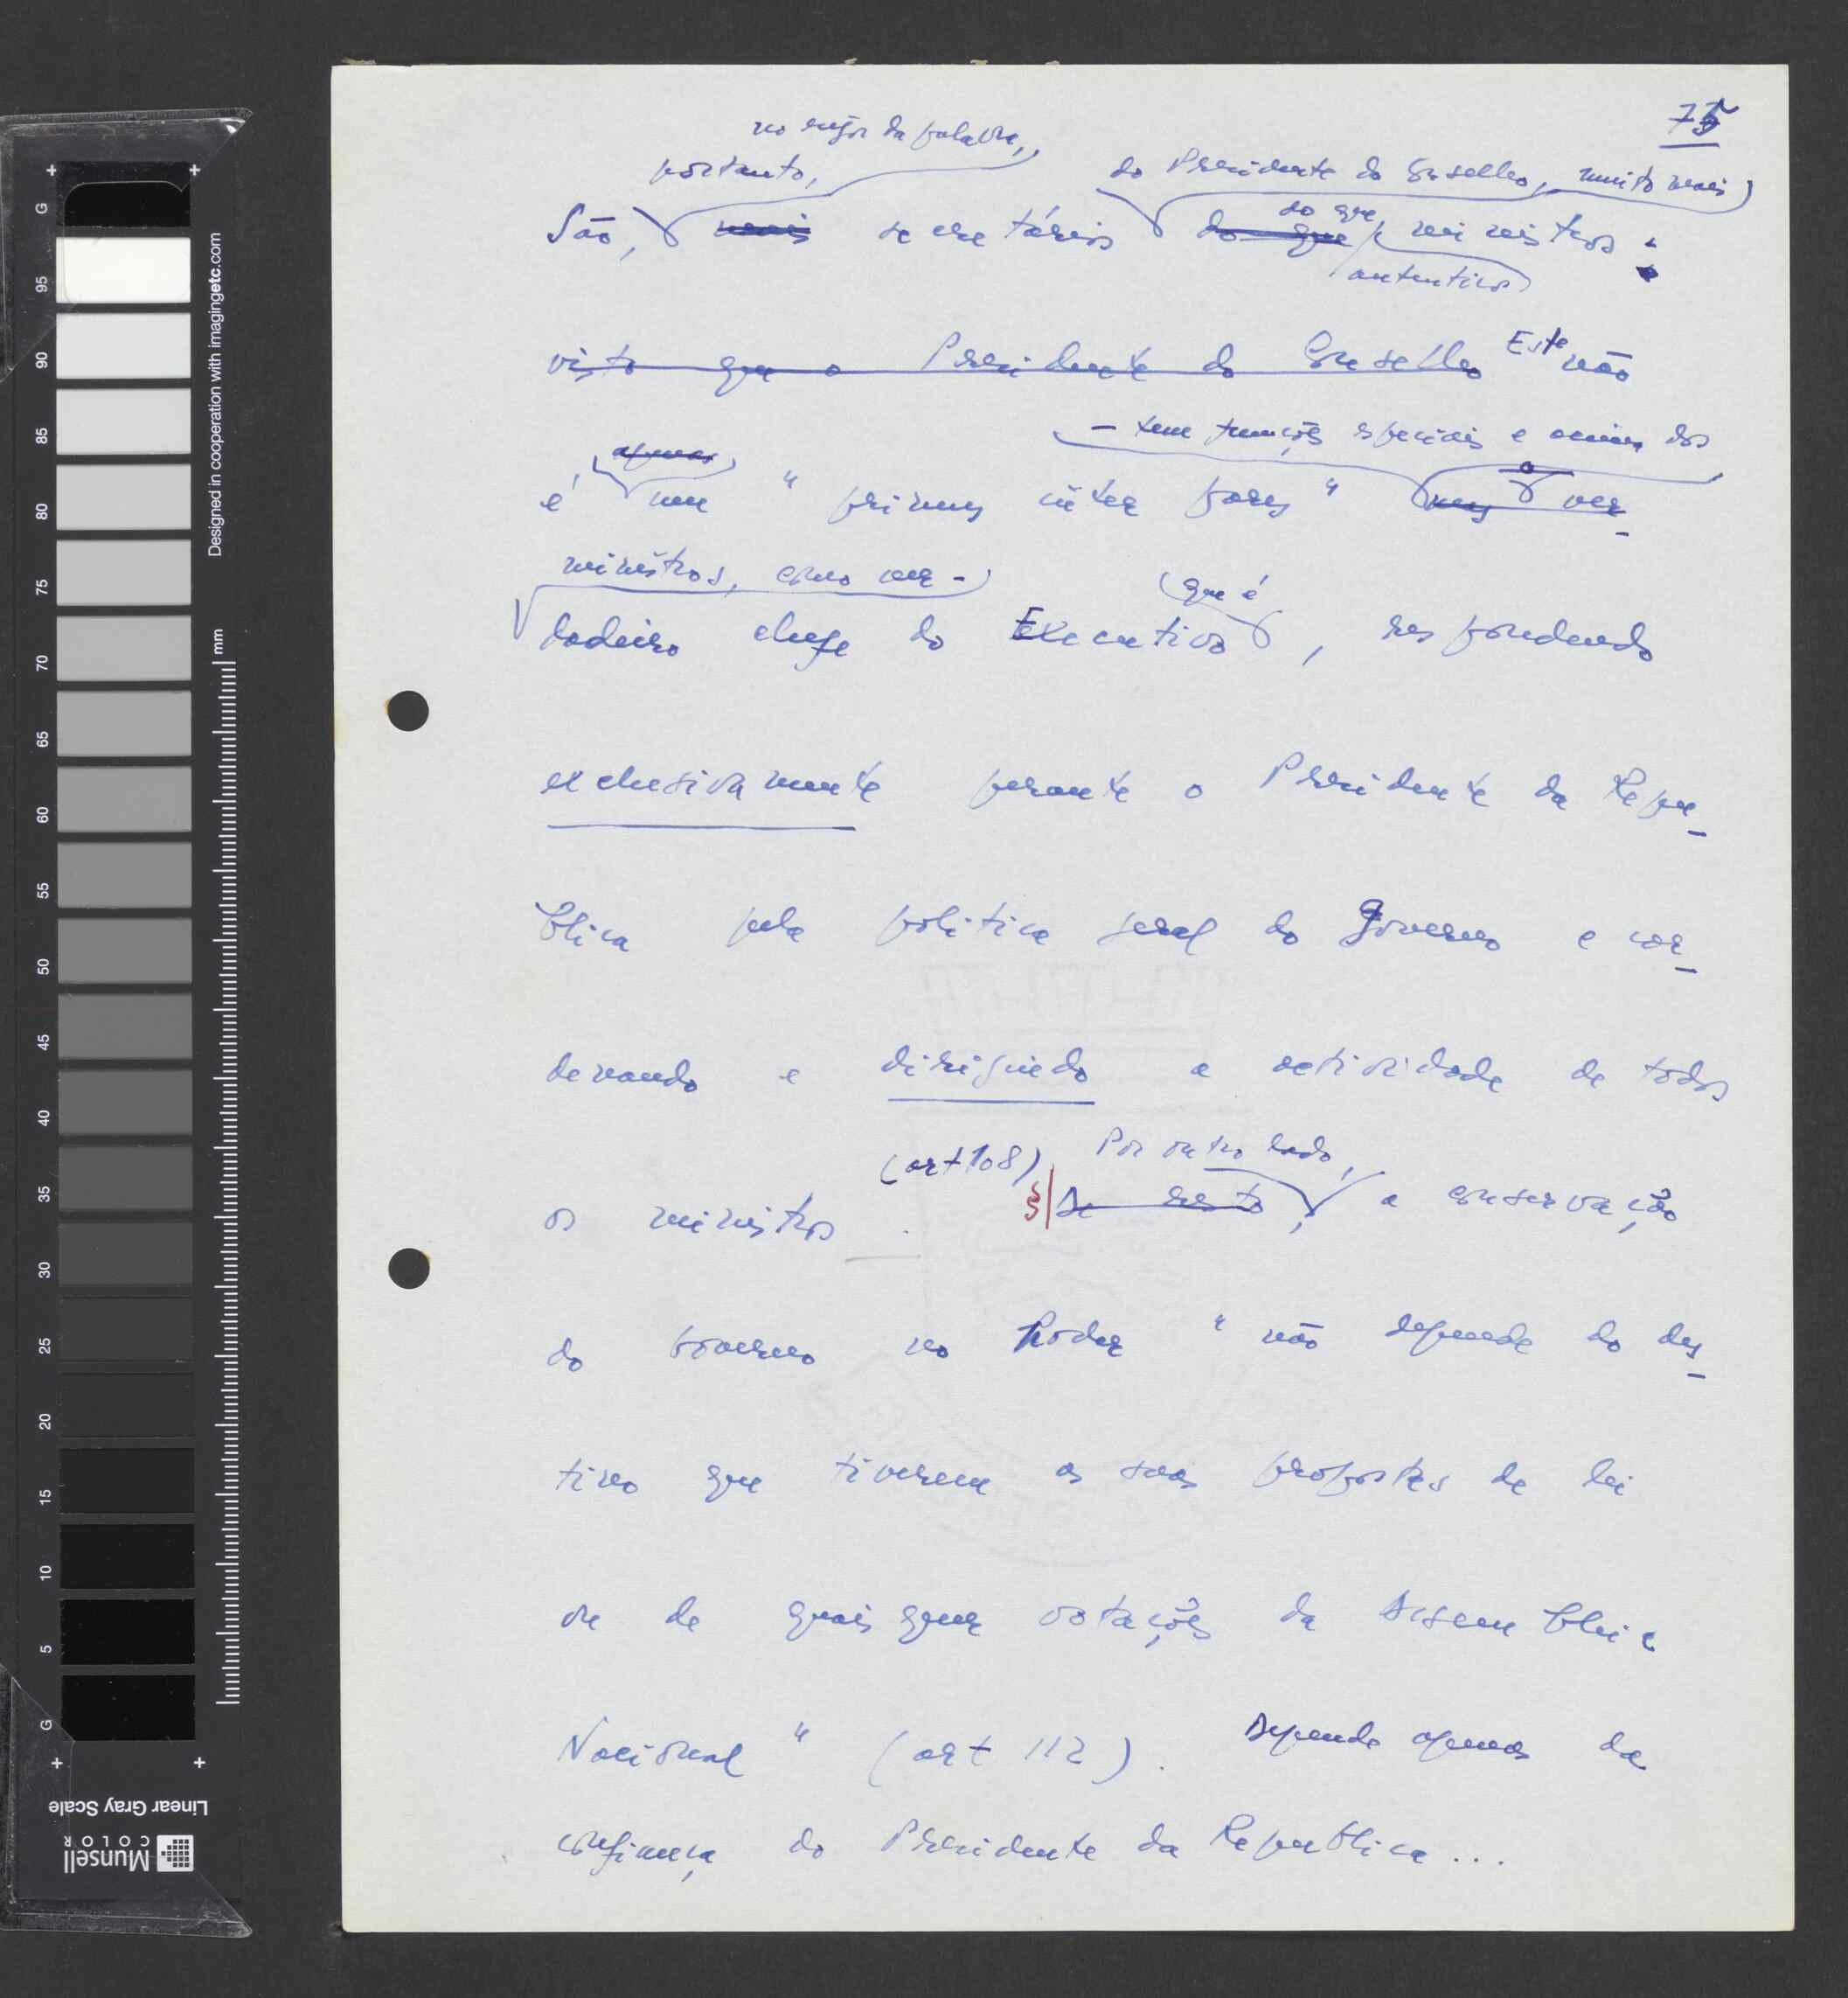 75
no rigor da palavra,
portanto,
do Presidente do Conselho, muito mais
São, mais secretários do que ministros :
do que
autenticos
visto que o Presidente do Conselho Este não
- tem funções especiais e acima dos
apenas
o
é um " primus inter pares " mas ver-
ministros, como ver-
que é
dadeiro chefe do Executivo , respondendo
exclusivamente perante o Presidente da Repu-
blica pela politica geral do Governo e coor-
denando e dirigindo a actividade de todos
(art 108) Por outro lado,
os ministros . § De resto, a conservação
do Governo no Poder " não depende do des-
tino que tiverem as suas propostas de lei
ou de quaisquer votações da Assembleia
Nacional " (art 112). Depende apenas da
confiança do Presidente da Republica ...
Designed in cooperation with imagingetc.com
mm
G
95
90
85
80
75
70
65
60
55
50
45
40
35
30
25
20
15
10
5
G
Linear Gray Scale
Munsell
COLOR